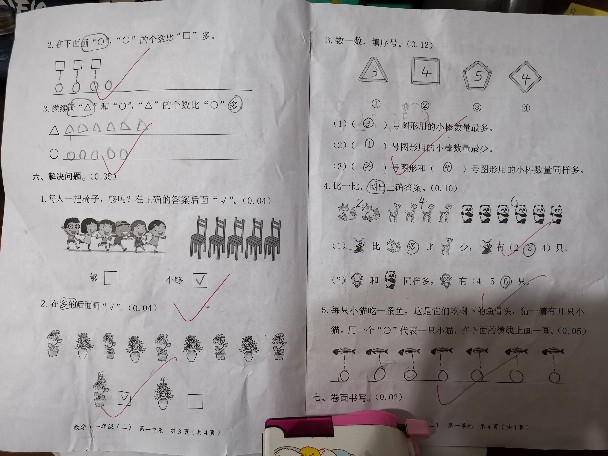 2.在下面画“○”，“○”的个数比“□”多。
3.继续画“△”和“○”，“△”的个数比“○”多
六、解决问题。(0.08)
1.每人一把椅子，够吗？在正确的答案后画“√”。(0.04)
够 □ 不够 √
2.在多的后面画“√”。(0.04)
数学 一年级(上) 第一单元 第3页(共4页)
3.数一数，填序号。(0.12)
3 4 5 4
① ② ③ ④
(1)( ③ )号图形用的小棒数量最多。
(2)( ① )号图形用的小棒数量最少。
(3)( ② )号图形和( ④ )号图形用的小棒数量同样多。
4.比一比，圈出正确答案。(0.10)
4
(1) 比 多 少， 有(2 3 4)只。
(2) 和 同样多， 有(4 5 6)只。
5.每只小猫吃一条鱼，这是它们吃剩下的鱼骨头，猜一猜有几只小
猫。用一个“○”代表一只小猫，在下面的横线上画一画。(0.05)
七、卷面书写。(0.02)
第一单元 第4页(共4页)